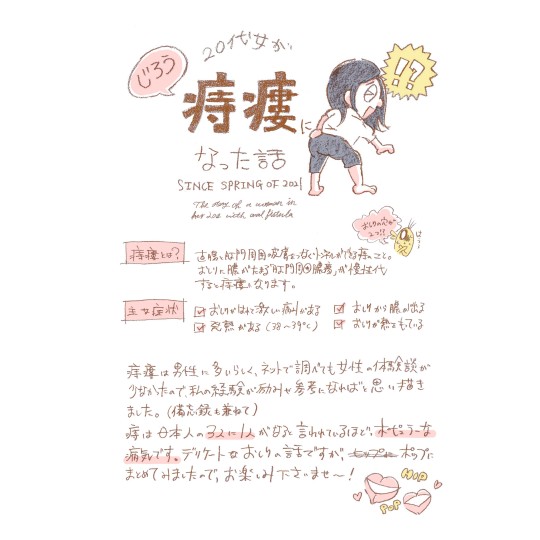 20代女が
じろう
痔瘻に
なった話
!?
SINCE SPRING OF 2021
The story of a woman in
her 20s with anal fistula
おしりの穴が
2つ!?
痔瘻とは?
直腸と肛門周囲の皮膚をつなぐトンネルができる病気のこと。
おしりに膿がたまる「肛門周囲膿瘍」が慢性化
すると痔瘻になります。
主な症状
おしりがはれて激しい痛みがある
おしりから膿が出る
発熱がある(38〜39℃)
おしりが熱をもっている
痔瘻は男性に多いらしく、ネットで調べても女性の体験談が
少なかったので、私の経験が励みや参考になればと思い描き
ました。(備忘録も兼ねて)
痔は日本人の3人に1人がなると言われているほど、ポピュラーな
病気です。デリケートなおしりの話ですが、ヒップにポップに
まとめてみましたので、お楽しみ下さいませ〜!
HIP
POP